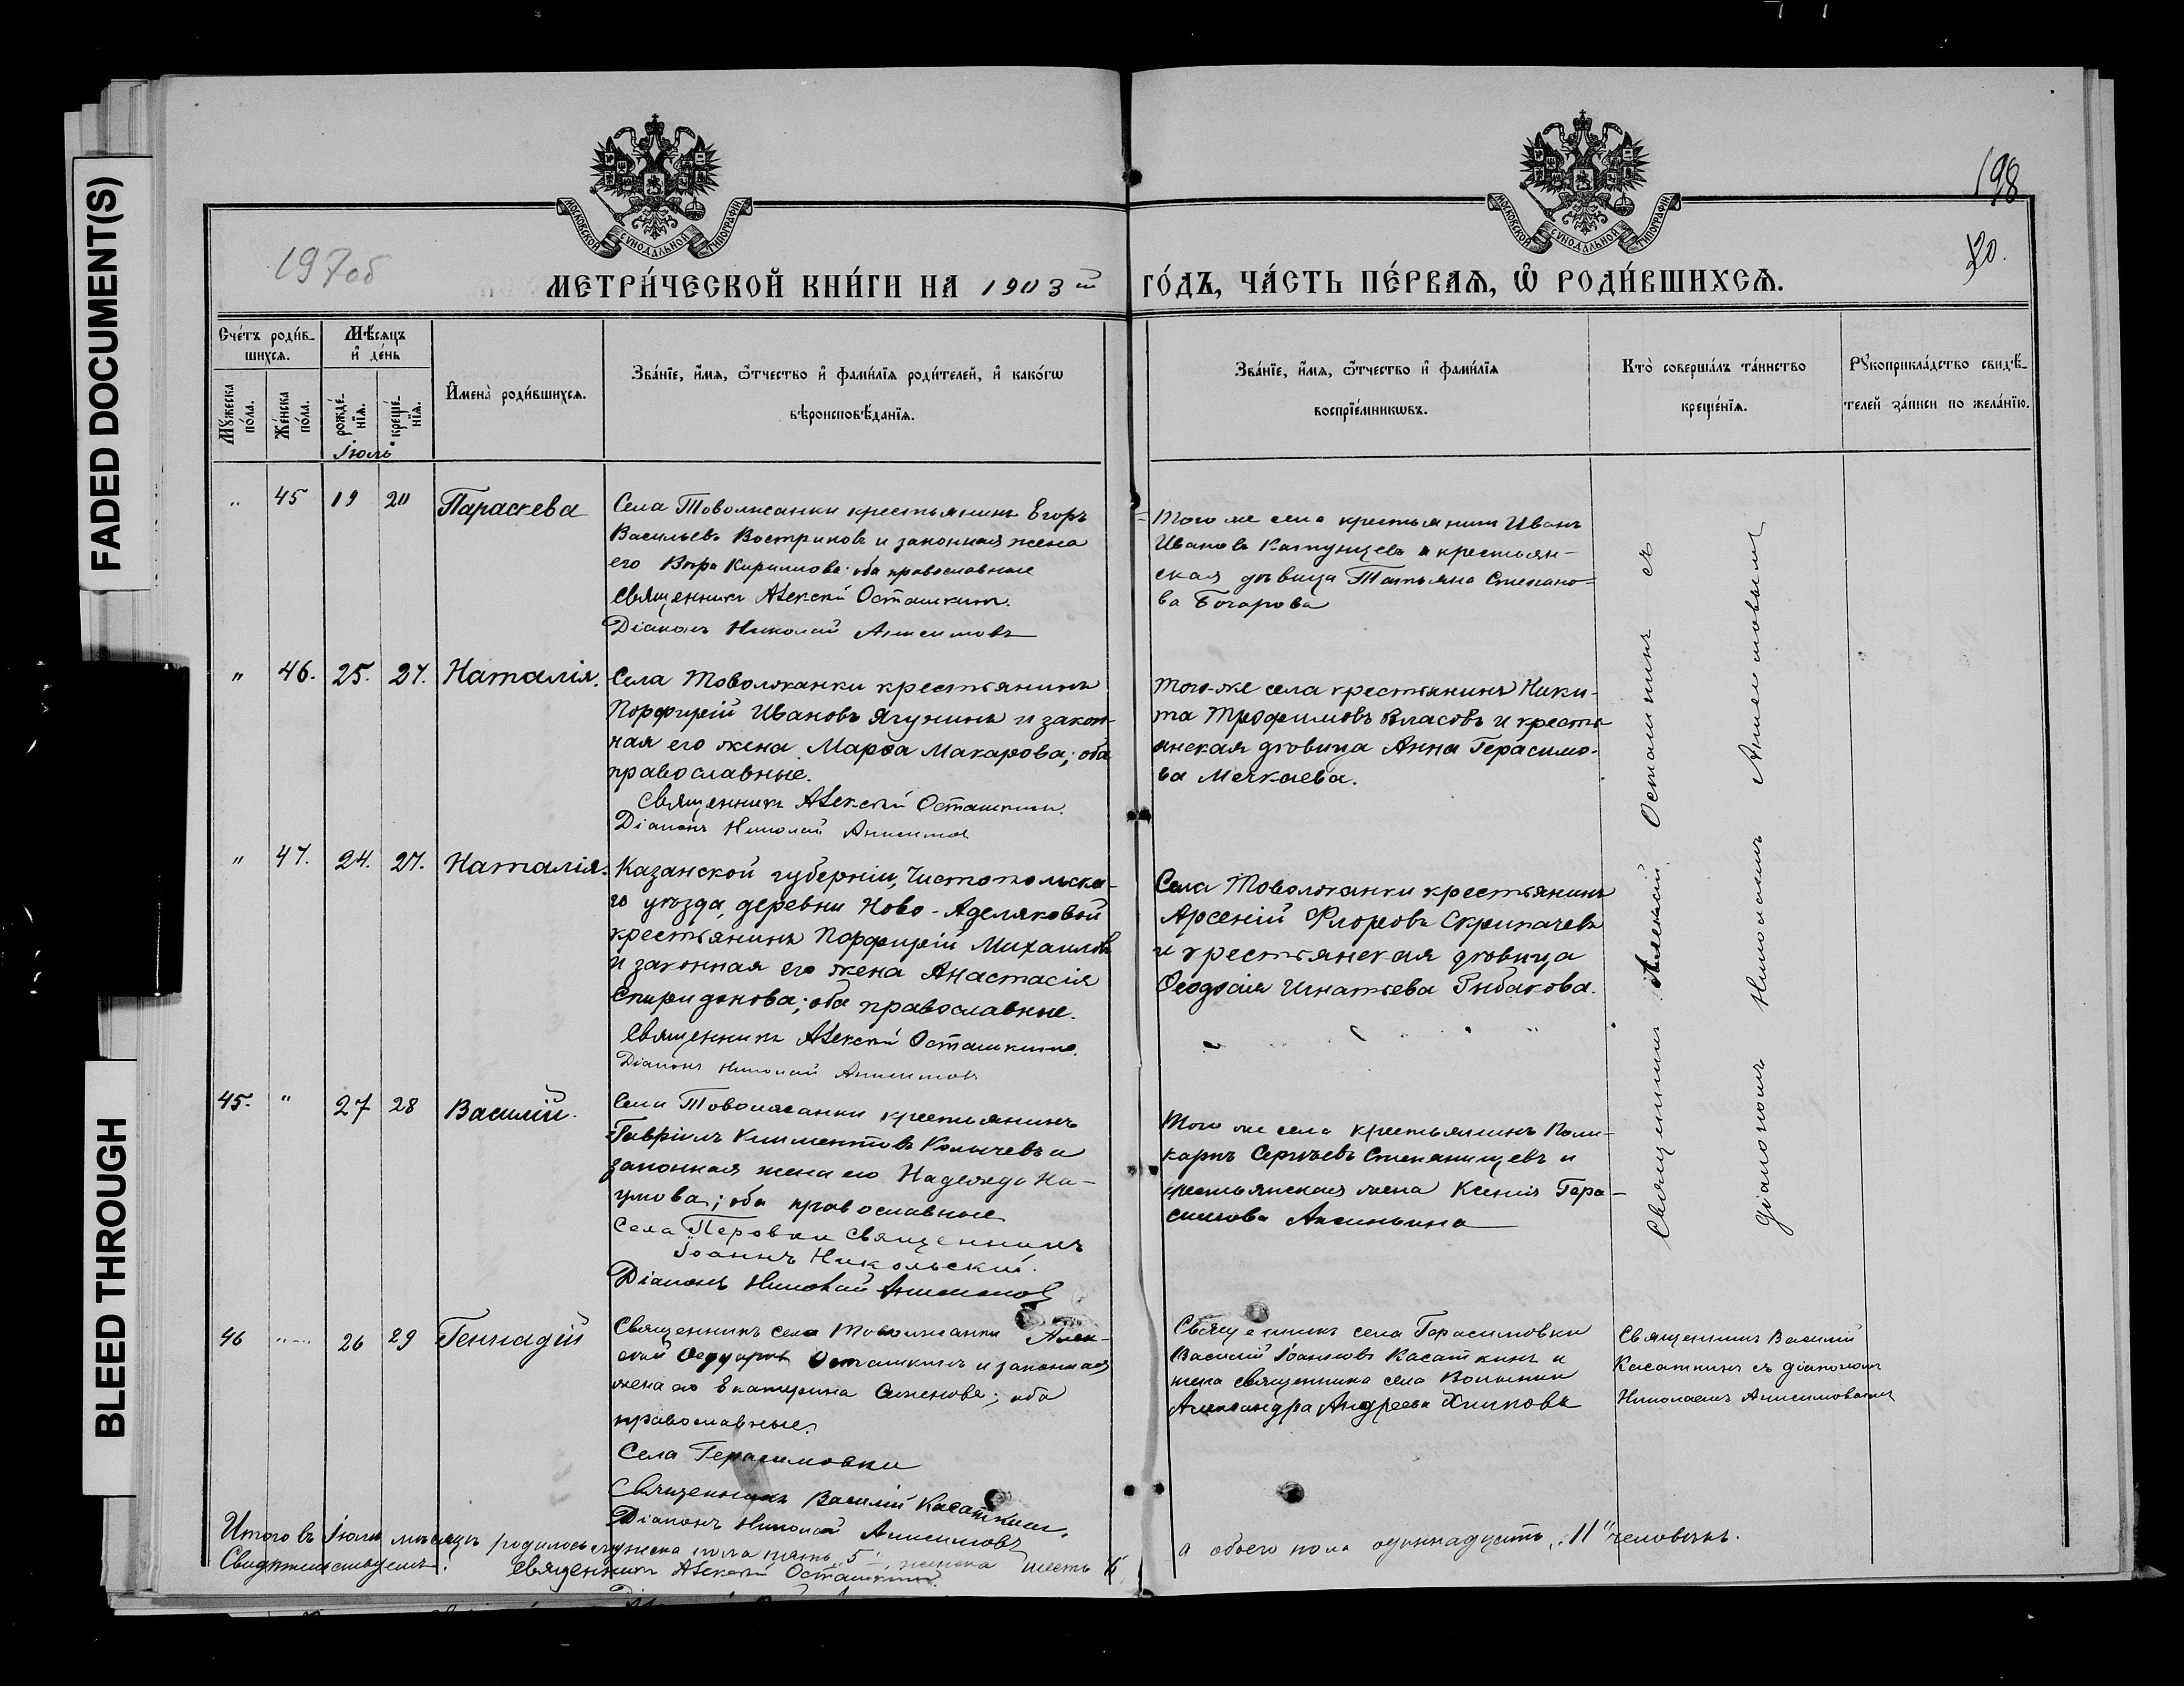 FADED DOCUMENT(S)
BLEED THROUGH
197об
198
20.
МОСКОВСКОЙ СѴНОДАЛЬНОЙ ТИПОГРАФІИ
МОСКОВСКОЙ СѴНОДАЛЬНОЙ ТИПОГРАФІИ
МЕТРИ́ЧЕСКОЙ КНИ́ГИ НА 1903 й ГО́ДЪ, ЧА́СТЬ ПЕ́РВАѦ, Ѡ҆ РОДИ́ВШИХСѦ.
Сче́тъ роди́в-
шихсѧ.
Мѣ́сѧцъ
и҆ де́нь
Мꙋжеска
по́ла.
Же́нска
по́ла.
рожде́-
нїѧ.
креще́-
нїѧ.
И҆мена̀ роди́вшихсѧ.
Зва́нїе, и҆́мѧ, ѻ҆́тчество и҆ фами́лїѧ роди́телей, и҆ како́гѡ
вѣроисповѣ́данїѧ.
Зва́нїе, и҆́мѧ, ѻ҆́тчество и҆ фами́лїѧ
воспрїе́мникѡвъ.
Кто̀ соверша́лъ та́инство
креще́нїѧ.
Рꙋкоприкла́дство свидѣ́-
телей за́писи по жела́нїю.
Іюль
" 45 19 20 Параскева
Села Товолжанки крестьянинъ Егоръ
Васильевъ Востриковъ и законная жена
его Вѣра Кирилова; оба православные
Священникъ Алексѣй Осташкинъ.
Діаконъ Николай Анисимовъ
Того же села крестьянинъ Иванъ
Ивановъ и крестьян-
ская дѣвица Татьяна Степано-
ва Бочарова
" 46. 25. 27. Наталія.
Села Товолжанки крестьянинъ
Порфирій Ивановъ Ягунинъ и закон-
ная его жена Марѳа Макарова; оба
православные.
Священникъ Алексѣй Осташкинъ.
Діаконъ Николай Анисимовъ
Того-же села крестьянинъ Ники-
та Трофимовъ Власовъ и кресть-
янская дѣвица Анна Герасимо-
ва Мечкаева.
" 47. 24. 27. Наталія.
Казанской губерніи, Чистопольска-
го уѣзда, деревни Ново-Аделяковой
крестьянинъ Порфирій Михаиловъ
и законная его жена Анастасія
Спиридонова; оба православные.
Священникъ Алексѣй Осташкинъ.
Діаконъ Николай Анисимовъ
Села Товолжанки крестьянинъ
Арсеній Флоровъ Скрипачевъ
и крестьянская дѣвица
Ѳеодосія Игнатьева Рыбакова.
45. " 27 28 Василій.
Села Товолжанки крестьянинъ
Гавріилъ Климентовъ Колычевъ и
законная жена его Надежда На-
умова; оба православные
Села Перовки Священникъ
Іоаннъ Никольскій.
Діаконъ Николай Анисимовъ
Того же села крестьянинъ Поли-
карпъ Сергѣевъ Степанищевъ и
крестьянская жена Ксенія Гера-
симова Аксиньина
Священникъ Алексѣй Осташкинъ съ
діакономъ Николаемъ Анисимовымъ
46 " 26 29 Геннадій
Священникъ села Товолжанки Алек-
сѣй Осташкинъ и законная
жена его Екатерина Семенова; оба
православные.
Села Герасимовки
Священникъ Василій Касаткинъ.
Діаконъ Николай Анисимовъ
Священникъ села Герасимовки
Василій Іоанновъ Касаткинъ и
жена священника села
Александра Андреева
Священникъ Василій
Касаткинъ съ діакономъ
Николаемъ Анисимовымъ
Итого въ Іюлѣ мѣсяцѣ родилось мужеска пола пять „5", женска шесть „6" а обоего пола одиннадцать „11" человѣкъ.
Свидѣтельствуемъ: Священникъ Алексѣй Осташкинъ.